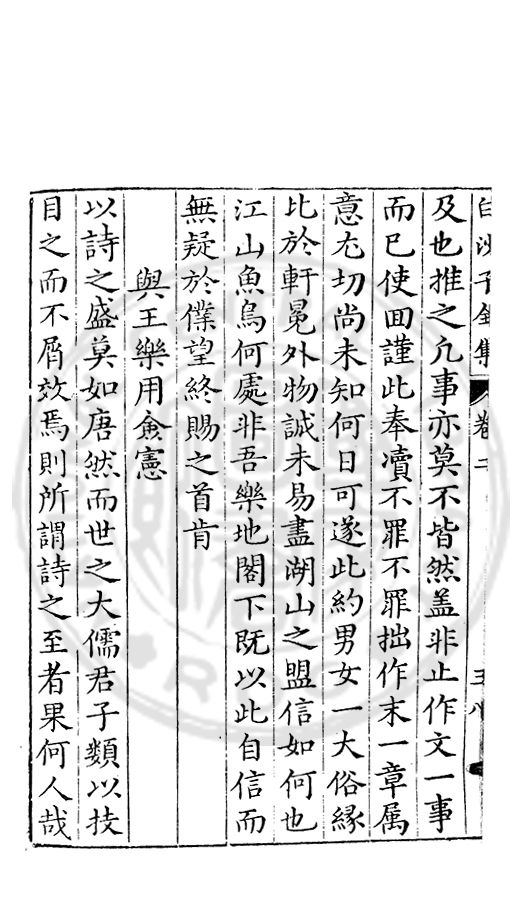 白沙子全集 卷二 五八
及也推之凡事亦莫不皆然盖非止作文一事
而已使回謹此奉凟不罪不罪拙作末一章属
意尤切尚未知何日可遂此約男女一大俗緣
比於軒冕外物誠未易盡湖山之盟信如何也
江山魚鳥何處非吾樂地閣下既以此自信而
無疑於僕望終賜之首肯
與王樂用僉憲
以詩之盛莫如唐然而世之大儒君子類以技
目之而不屑效焉則所謂詩之至者果何人哉